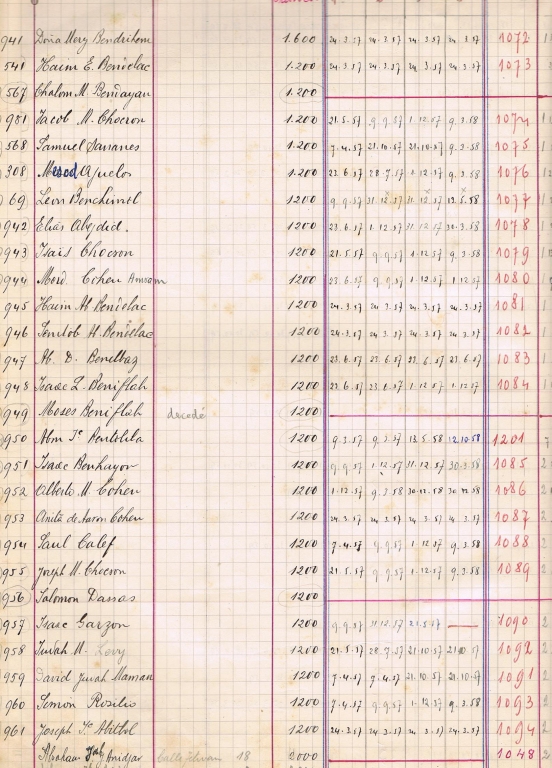 941 Doña Mery Bendrihem 1.600 24.3.57 24.3.57 24.3.57 24.3.57 1072
541 Haim E. Bendelac 1.200 24.3.57 24.3.57 24.3.57 24.3.57 1073
567 Chalom M. Bendayan 1.200
981 Jacob M. Chocron 1.200 21.5.57 9.9.57 1.12.57 9.3.58 1074
568 Samuel Sananes 1.200 7.4.57 21.10.57 21.10.57 9.3.58 1075
308 Mesod Ajuelos 1.200 23.6.57 28.7.57 1.12.57 9.3.58 1076
69 Leon Benchimol 1200 9.9.57 31.12.57 31.12.57 13.5.58 1077
942 Elias 1200 23.6.57 1.12.57 31.12.57 30.3.58 1078
943 Isais Chocron 1200 21.5.57 9.9.57 1.12.57 9.3.58 1079
944 Mord. Cohen Amram 1200 23.6.57 9.9.57 1.12.57 1.12.57 1080
945 Haim M. Bendelac 1200 24.3.57 24.3.57 24.3.57 24.3.57 1081
946 Semtob H. Bendelac 1200 24.3.57 24.3.57 24.3.57 24.3.57 1082
947 Ab. D. Benelbaz 1200 23.6.57 23.6.57 23.6.57 23.6.57 1083
948 Isaac L. Beniflah 1200 23.6.57 23.6.57 1.12.57 1.12.57 1084
949 Moses Beniflah decedé 1200
950 Abm Je Bentolila 1200 9.3.57 9.3.57 13.5.58 12.10.58 1201
951 Isaac Benhayon 1200 9.9.57 1.12.57 31.12.57 30.3.58 1085
952 Alberto M. Cohen 1200 1.12.57 9.3.58 30.12.58 30.12.58 1086
953 Anita de Aaron Cohen 1200 24.3.57 24.3.57 24.3.57 24.3.57 1087
954 Saul Calef 1200 7.4.57 9.9.57 1.12.57 9.3.58 1088
955 Joseph M. Chocron 1200 21.5.57 9.9.57 1.12.57 9.3.58 1089
956 Salomon Dassas 1200
957 Isaac Garzon 1200 9.9.57 31.12.57 21.5.57 1090
958 Judah M. Levy 1200 21.5.57 28.7.57 21.10.57 21.10.57 1092
959 David Judah Maman 1200 7.4.57 7.4.57 21.10.57 21.10.57 1091
960 Simon Rosilio 1200 7.4.57 9.9.57 1.12.57 9.3.58 1093
961 Joseph Je Abitbol 1200 24.3.57 24.3.57 24.3.57 24.3.57 1094
Abraham Anidjar 18 2000 1048